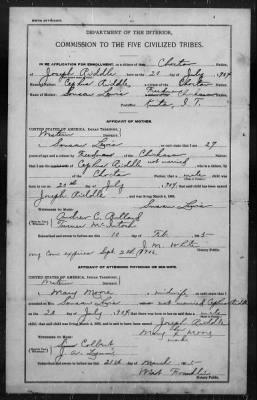 DEPARTMENT OF THE INTERIOR,
COMMISSION TO THE FIVE CIVILIZED TRIBES.
IN THE APPLICATION FOR ENROLLMENT, as a citizen of the Choctaw Nation,
of Joseph Riddle born on the 20 day of July, 1904
Name of Father: Cephus Riddle a citizen of the Choctaw Nation.
Name of Mother: Susan Lewis a citizen of the Nation.
Postoffice Kinta, I. T.
AFFIDAVIT OF MOTHER.
UNITED STATES OF AMERICA, INDIAN TERRITORY,
Western District.
I, Susan Lewis on oath state that I am 27
years of age and a citizen by Freedman of the Chickasaw Nation;
that I am not married to Cephus Riddle, who is a citizen, by
of the Choctaw Nation; that a male child was
born to me on 20th day of July, 1904, that said child has been named
Joseph Riddle, and was living March 4, 1905.
Susan Lewis
WITNESSES TO MARK:
Turner McIntosh
Subscribed and sworn to before me this 18 day of Feb, 1905
J. M. White
Notary Public.
My Com expires Sept 2nd 1906.
AFFIDAVIT OF ATTENDING PHYSICIAN OR MIDWIFE.
UNITED STATES OF AMERICA, INDIAN TERRITORY,
Western District.
I, Mary Moore, a midwife, on oath state that I
attended on Susan Lewis not married Cephus Riddle
on the 20 day of July, 1904, that there was born to her on said date a male
child; that said child was living March 4, 1905, and is said to have been named Joseph Riddle
Mary Moore
mark
WITNESSES TO MARK:
Colbert
Subscribed and sworn to before me this 21st day of March, 1905
West Franklin
Notary Public.